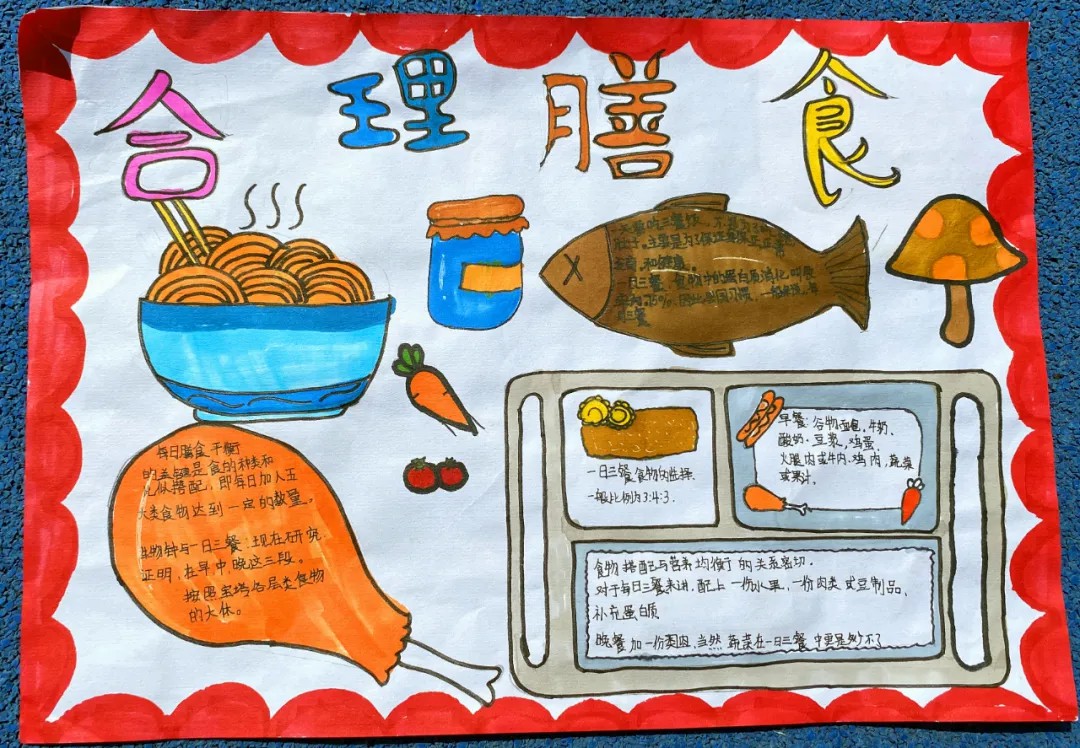 合理膳食
一日三餐
主要是为了保证
和健康。
一日三餐 食物中的蛋白质消化吸收
三餐
每日膳食平衡
的关键是食的种类和
搭配，即每日加入五
大类食物达到一定的数量。
生物钟与一日三餐：现在研究
证明，在早中晚这三段。
按照宝塔各层类食物
的大体。
一日三餐食物的选择
一般比例为3:4:3.
早餐：谷物面包，牛奶、
酸奶·豆浆，鸡蛋、
火腿肉或牛肉·鸡肉，蔬菜
或果汁。
食物搭配与营养均衡的关系密切.
对于每日三餐来讲，配上一份水果，一份肉类或豆制品、
补充蛋白质
晚餐加一份 当然蔬菜在一日三餐中更是缺少不了